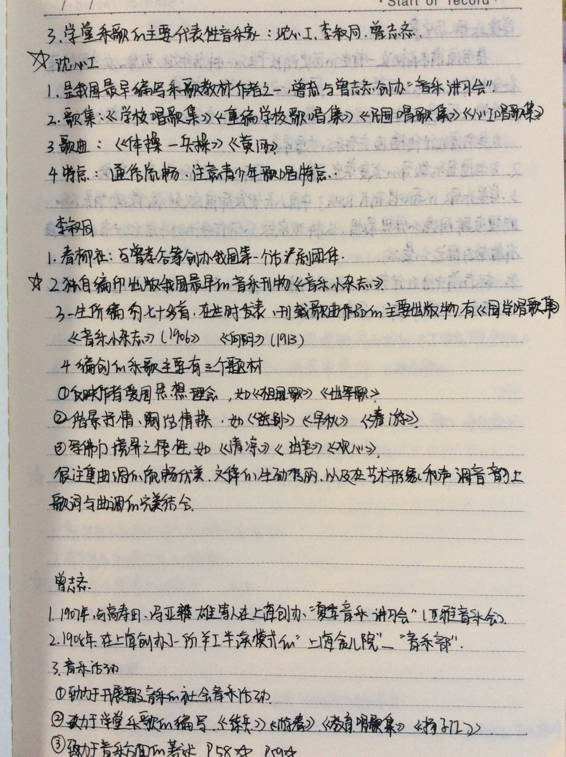 Start of record
3. 学堂乐歌的主要代表性音乐家：沈心工、李叔同、曾志忞.
☆沈心工
1. 是我国最早编写乐歌教材作者之一 曾志忞创办“音乐讲习会”
2. 歌集：《学校唱歌集》《重编学校歌唱集》《民国唱歌集》《心工唱歌集》
3 歌曲：《体操—兵操》《黄河》
4 特点：通俗流畅、注意青少年歌唱特点.
李叔同
1. 春柳社：与曾孝谷等创办我国第一个话剧团体.
☆ 2. 独自编印出版我国最早的音乐刊物《音乐小杂志》
3. 一生所编约七十多首，在此时发表、刊载歌曲作品的主要出版物有《国学唱歌集》
《音乐小杂志》(1906) 《白阳》(1913)
4 编创的乐歌主要有三个题材
①反映作者爱国思想理念，如《祖国歌》《出军歌》
②借景抒情、陶冶情操，如《送别》《早秋》《春游》
③写佛门境界之悟性，如《清凉》《山色》《观心》.
很注重曲调的流畅优美、文体的生动秀丽，以及在艺术形象和声调音韵上
歌词与曲调的完美结合.
曾志忞
1. 1907年，与高寿田、冯亚雄等人在上海创办“夏季音乐讲习会”(亚雅音乐会)
2. 1908年在上海创办了一所半工半读模式的“上海贫儿院”—“音乐部”.
3. 音乐活动
①致力于开展普及音乐的社会音乐活动.
②致力于学堂乐歌的编写.《练兵》《游春》《教育唱歌集》《扬子江》
③致力于音乐方面的著述 P58☆ P59☆